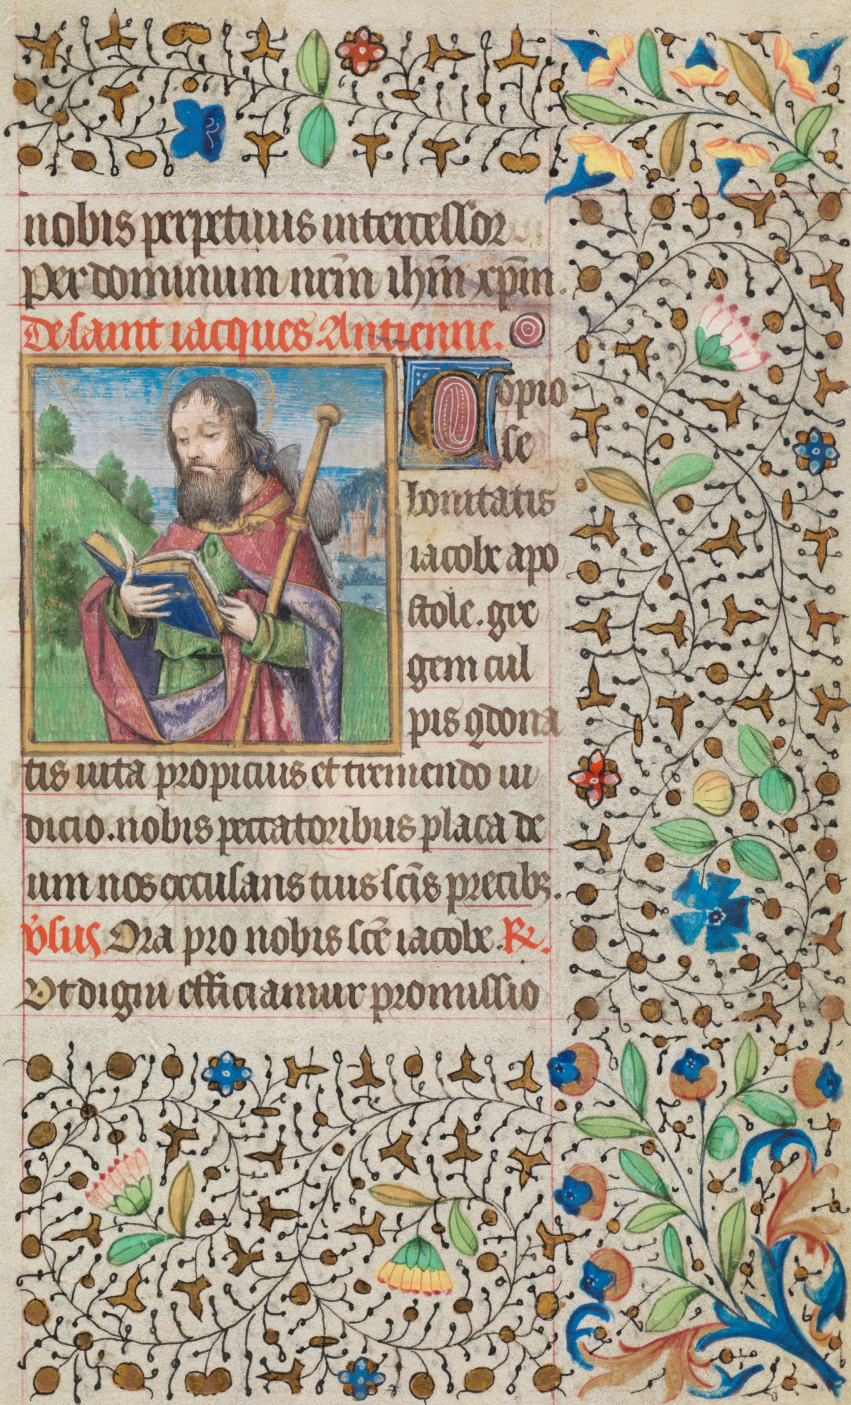 nobis perpetuus intercessor
per dominum nr̄m ih̄m xp̄m.
De saint iacques Antienne.
O opio
se
bonitatis
iacobe apo
stole. gre
gem cul
pis ꝯdona
tis iuta propicius et tremendo iu
dicio. nobis peccatoribus placa de
um nos excusans tuis sc̄is precibꝫ.
v̄sus Ora pro nobis sc̄e iacobe. R.
Vt digni efficiamur promissio